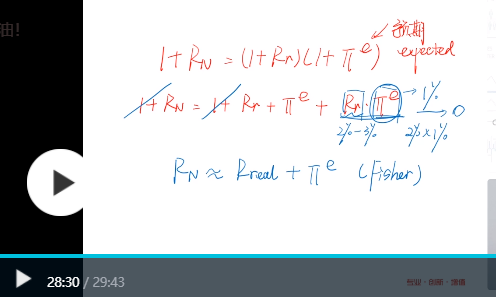 油!
预期
1+R_N = (1+Rr)(1+π^e) expected
1+R_N = 1+Rr+π^e + Rr·π^e → 1%
2%-3% 2%×1% → 0
R_N ≈ Rreal + π^e (Fisher)
28:30 / 29:43